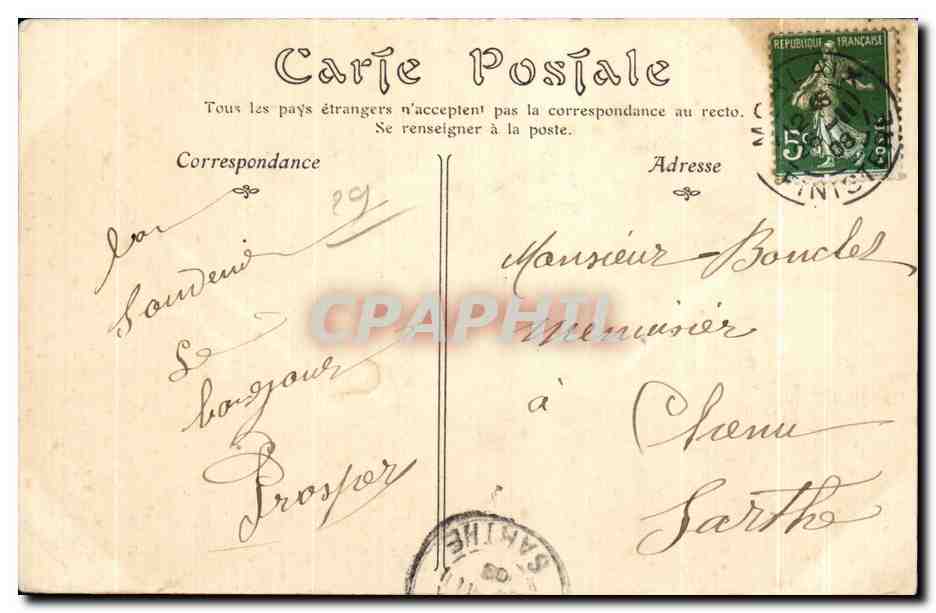 Carte Postale
Tous les pays étrangers n'acceptent pas la correspondance au recto.
Se renseigner à la poste.
Correspondance
Adresse
REPUBLIQUE FRANÇAISE
5c
POSTES
FINISTERE
08
29
bon
Souvenir
Le
bonjour
Prosper
Monsieur Bouclet
menuisier
à
Chenu
Sarthe
SARTHE
08
CPAPHIL